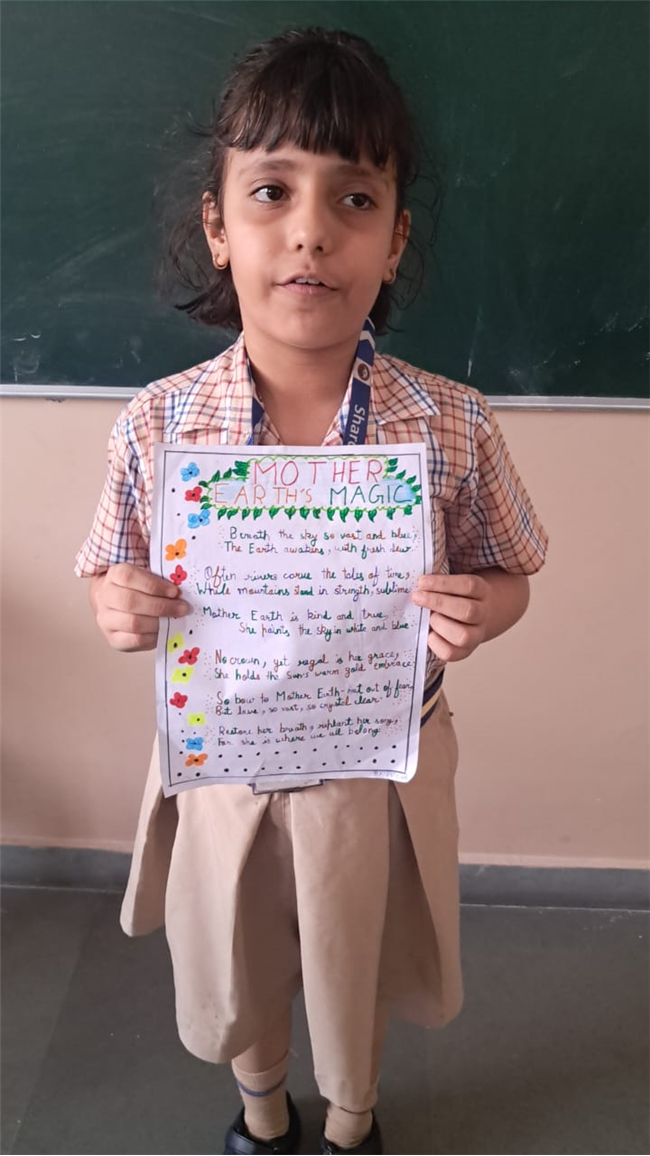 Share
MOTHER
EARTH'S MAGIC
Beneath the sky so vast and blue,
The Earth awakens, with fresh dew.
Often rivers carve the tales of time,
While mountains stand in strength, sublime.
Mother Earth is kind and true,
She paints the sky in white and blue.
No crown, yet regal is her grace,
She holds the sun's warm gold embrace.
So bow to Mother Earth-not out of fear,
But love, so vast, so crystal clear.
Restore her breath, replant her song,
For she is where we all belong.